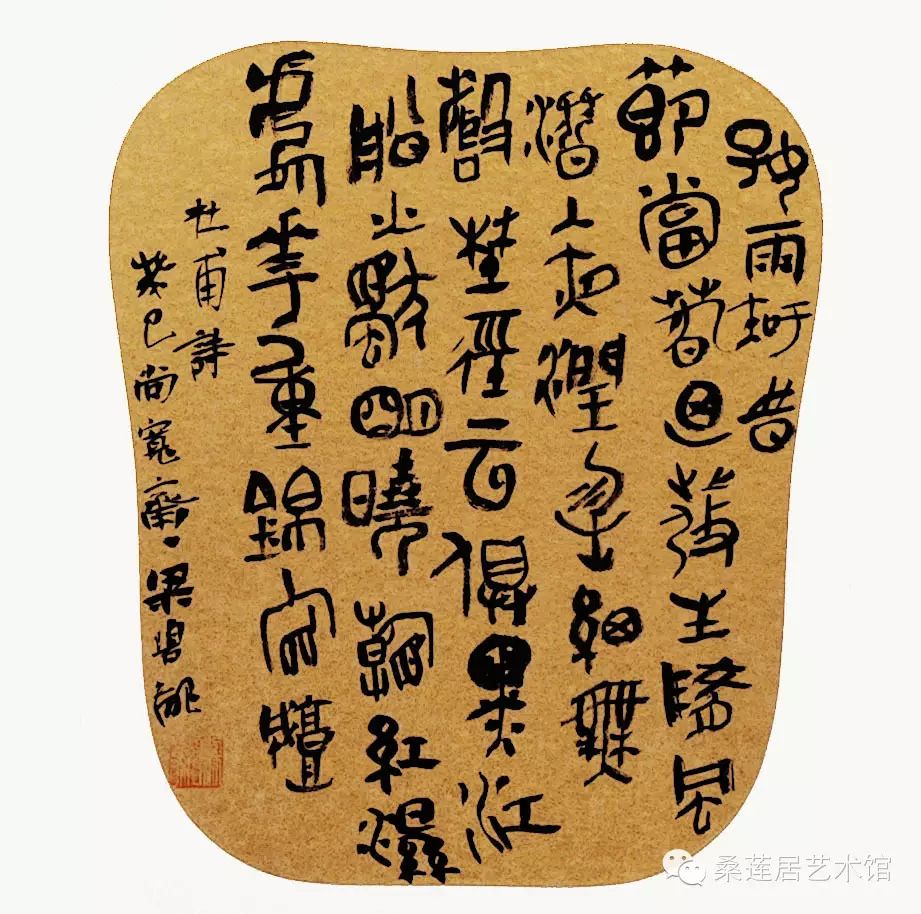 好雨知旹
節當春迺發生隨風
潛入夜潤物細無
聲埜徑云俱黑江
船火獨明曉看紅濕
處花重錦官城
杜甫詩
癸巳尚齋梁
桑莲居艺术馆